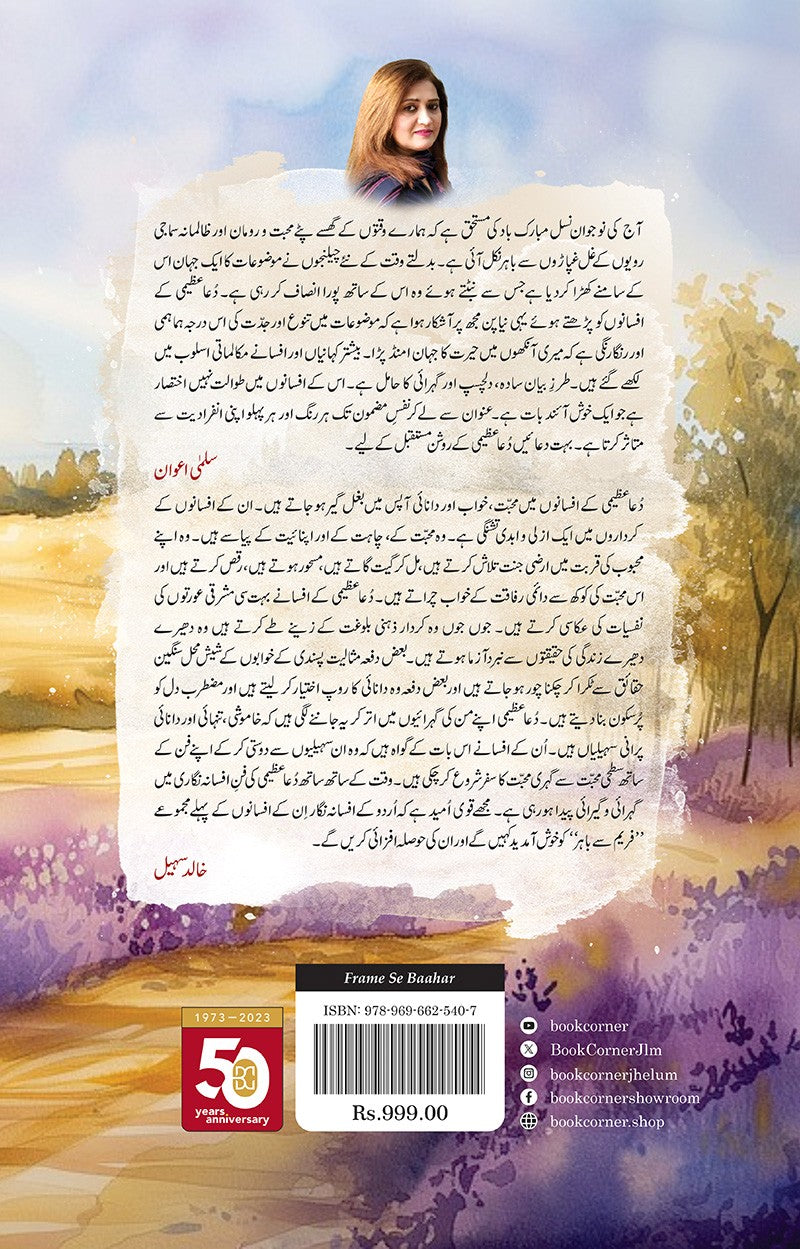 آج کی نوجوان نسل مبارک باد کی مستحق ہے کہ ہمارے وقتوں کے گھسے پٹے محبت و رومان اور ظالمانہ سماجی
رویوں کے غل غپاڑوں سے باہر نکل آئی ہے۔ بدلتے وقت کے نئے چیلنجوں نے موضوعات کا ایک جہان اس
کے سامنے کھڑا کر دیا ہے جس سے نبٹتے ہوئے وہ اس کے ساتھ پورا انصاف کر رہی ہے۔ دُعا عظیمی کے
افسانوں کو پڑھتے ہوئے یہی نیا پن مجھ پر آشکار ہوا ہے کہ موضوعات میں تنوع اور جدّت کی اس درجہ ہماہمی
اور رنگا رنگی ہے کہ میری آنکھوں میں حیرت کا جہان امنڈ پڑا۔ بیشتر کہانیاں اور افسانے مکالماتی اسلوب میں
لکھے گئے ہیں۔ طرزِ بیان سادہ، دلچسپ اور گہرائی کا حامل ہے۔ اس کے افسانوں میں طوالت نہیں اختصار
ہے جو ایک خوش آئند بات ہے۔ عنوان سے لے کر نفسِ مضمون تک ہر رنگ اور ہر پہلو اپنی انفرادیت سے
متاثر کرتا ہے۔ بہت دعائیں دُعا عظیمی کے روشن مستقبل کے لیے۔
سلمیٰ اعوان
دُعا عظیمی کے افسانوں میں محبّت، خواب اور دانائی آپس میں بغل گیر ہو جاتے ہیں۔ ان کے افسانوں کے
کرداروں میں ایک ازلی و ابدی تشنگی ہے۔ وہ محبّت کے، چاہت کے اور اپنائیت کے پیاسے ہیں۔ وہ اپنے
محبوب کی قربت میں ارضی جنت تلاش کرتے ہیں، مل کر گیت گاتے ہیں، مسحور ہوتے ہیں، رقص کرتے ہیں اور
اس محبّت کی کوکھ سے دائمی رفاقت کے خواب چراتے ہیں۔ دُعا عظیمی کے افسانے بہت سی مشرقی عورتوں کی
نفسیات کی عکاسی کرتے ہیں۔ جوں جوں وہ کردار ذہنی بلوغت کے زینے طے کرتے ہیں وہ دھیرے
دھیرے زندگی کی حقیقتوں سے نبرد آزما ہوتے ہیں۔ بعض دفعہ مثالیت پسندی کے خوابوں کے شیش محل سنگین
حقائق سے ٹکرا کر چکنا چور ہو جاتے ہیں اور بعض دفعہ وہ دانائی کا روپ اختیار کر لیتے ہیں اور مضطرب دل کو
پُرسکون بنا دیتے ہیں۔ دُعا عظیمی اپنے من کی گہرائیوں میں اتر کر یہ جاننے لگی ہیں کہ خاموشی، تنہائی اور دانائی
پرانی سہیلیاں ہیں۔ اُن کے افسانے اس بات کے گواہ ہیں کہ وہ ان سہیلیوں سے دوستی کر کے اپنے فن کے
ساتھ سطحی محبّت سے گہری محبّت کا سفر شروع کر چکی ہیں۔ وقت کے ساتھ ساتھ دُعا عظیمی کی فنِ افسانہ نگاری میں
گہرائی و گیرائی پیدا ہو رہی ہے۔ مجھے قوی اُمید ہے کہ اُردو کے افسانہ نگار اِن کے افسانوں کے پہلے مجموعے
”فریم سے باہر“ کو خوش آمدید کہیں گے اور ان کی حوصلہ افزائی کریں گے۔
خالد سہیل
Frame Se Baahar
ISBN: 978-969-662-540-7
Rs.999.00
1973–2023
50
years
anniversary
bookcorner
BookCornerJlm
bookcornerjhelum
bookcornershowroom
bookcorner.shop